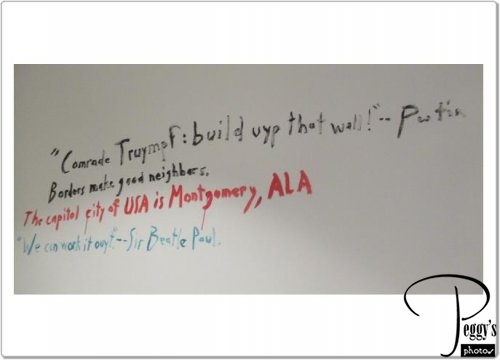 "Comrade Truympf: build uyp that wall!"-- Putin
Borders make good neighbors.
The capitol city of USA is Montgomery, ALA
"We can work it ouyt"--Sir Beatle Paul.
Peggy's
photos